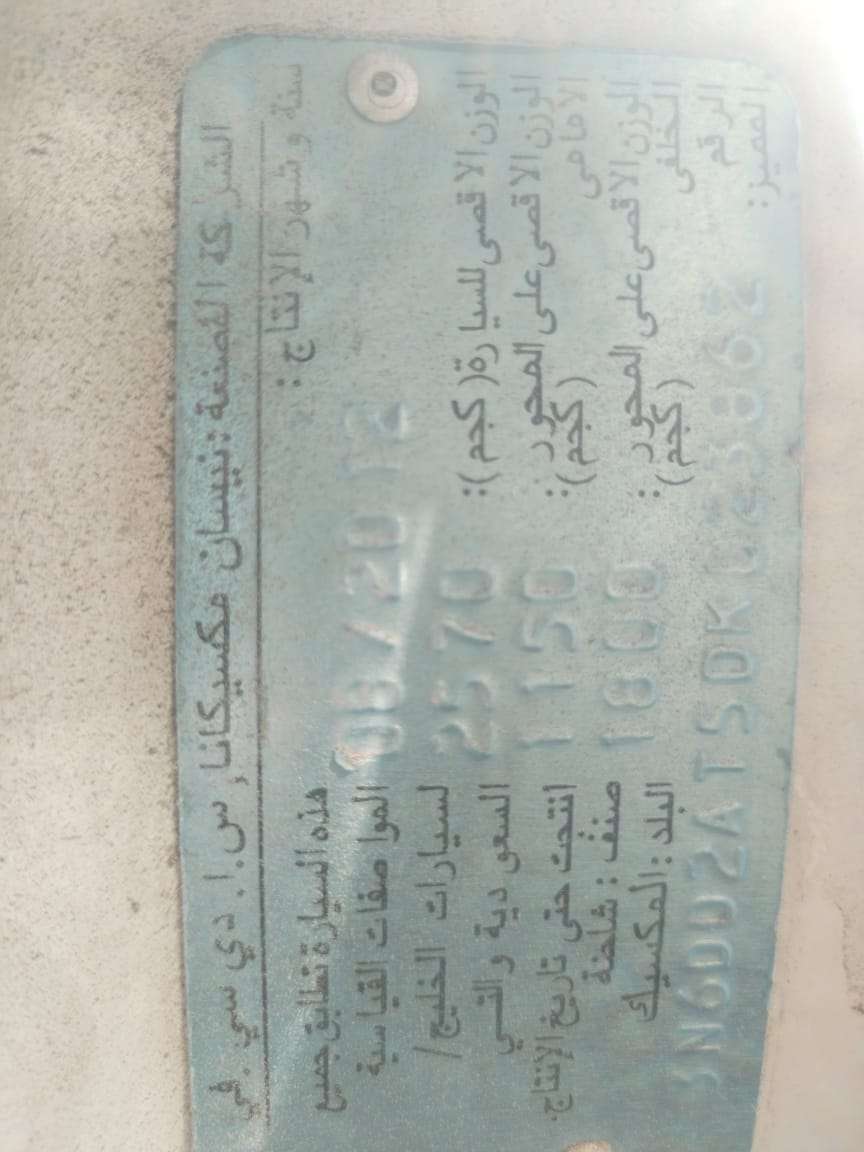 الشركة المصنعة : نيسان مكسيكانا, س.ا. دي سي. في
سنة و شهر الإنتاج :
06/2012
الوزن الاقصى للسيارة (كجم): 2570
الوزن الاقصى على المحور
الامامى (كجم): 1150
الوزن الاقصى على المحور
الخلفى (كجم): 1800
الرقم
المميز: 3N6DD2AT5DK023862
هذه السيارة تطابق جميع
المواصفات القياسية
لسيارات الخليج /
السعودية والتي
انتجت حتى تاريخ الإنتاج.
صنف : شاحنة
البلد : المكسيك